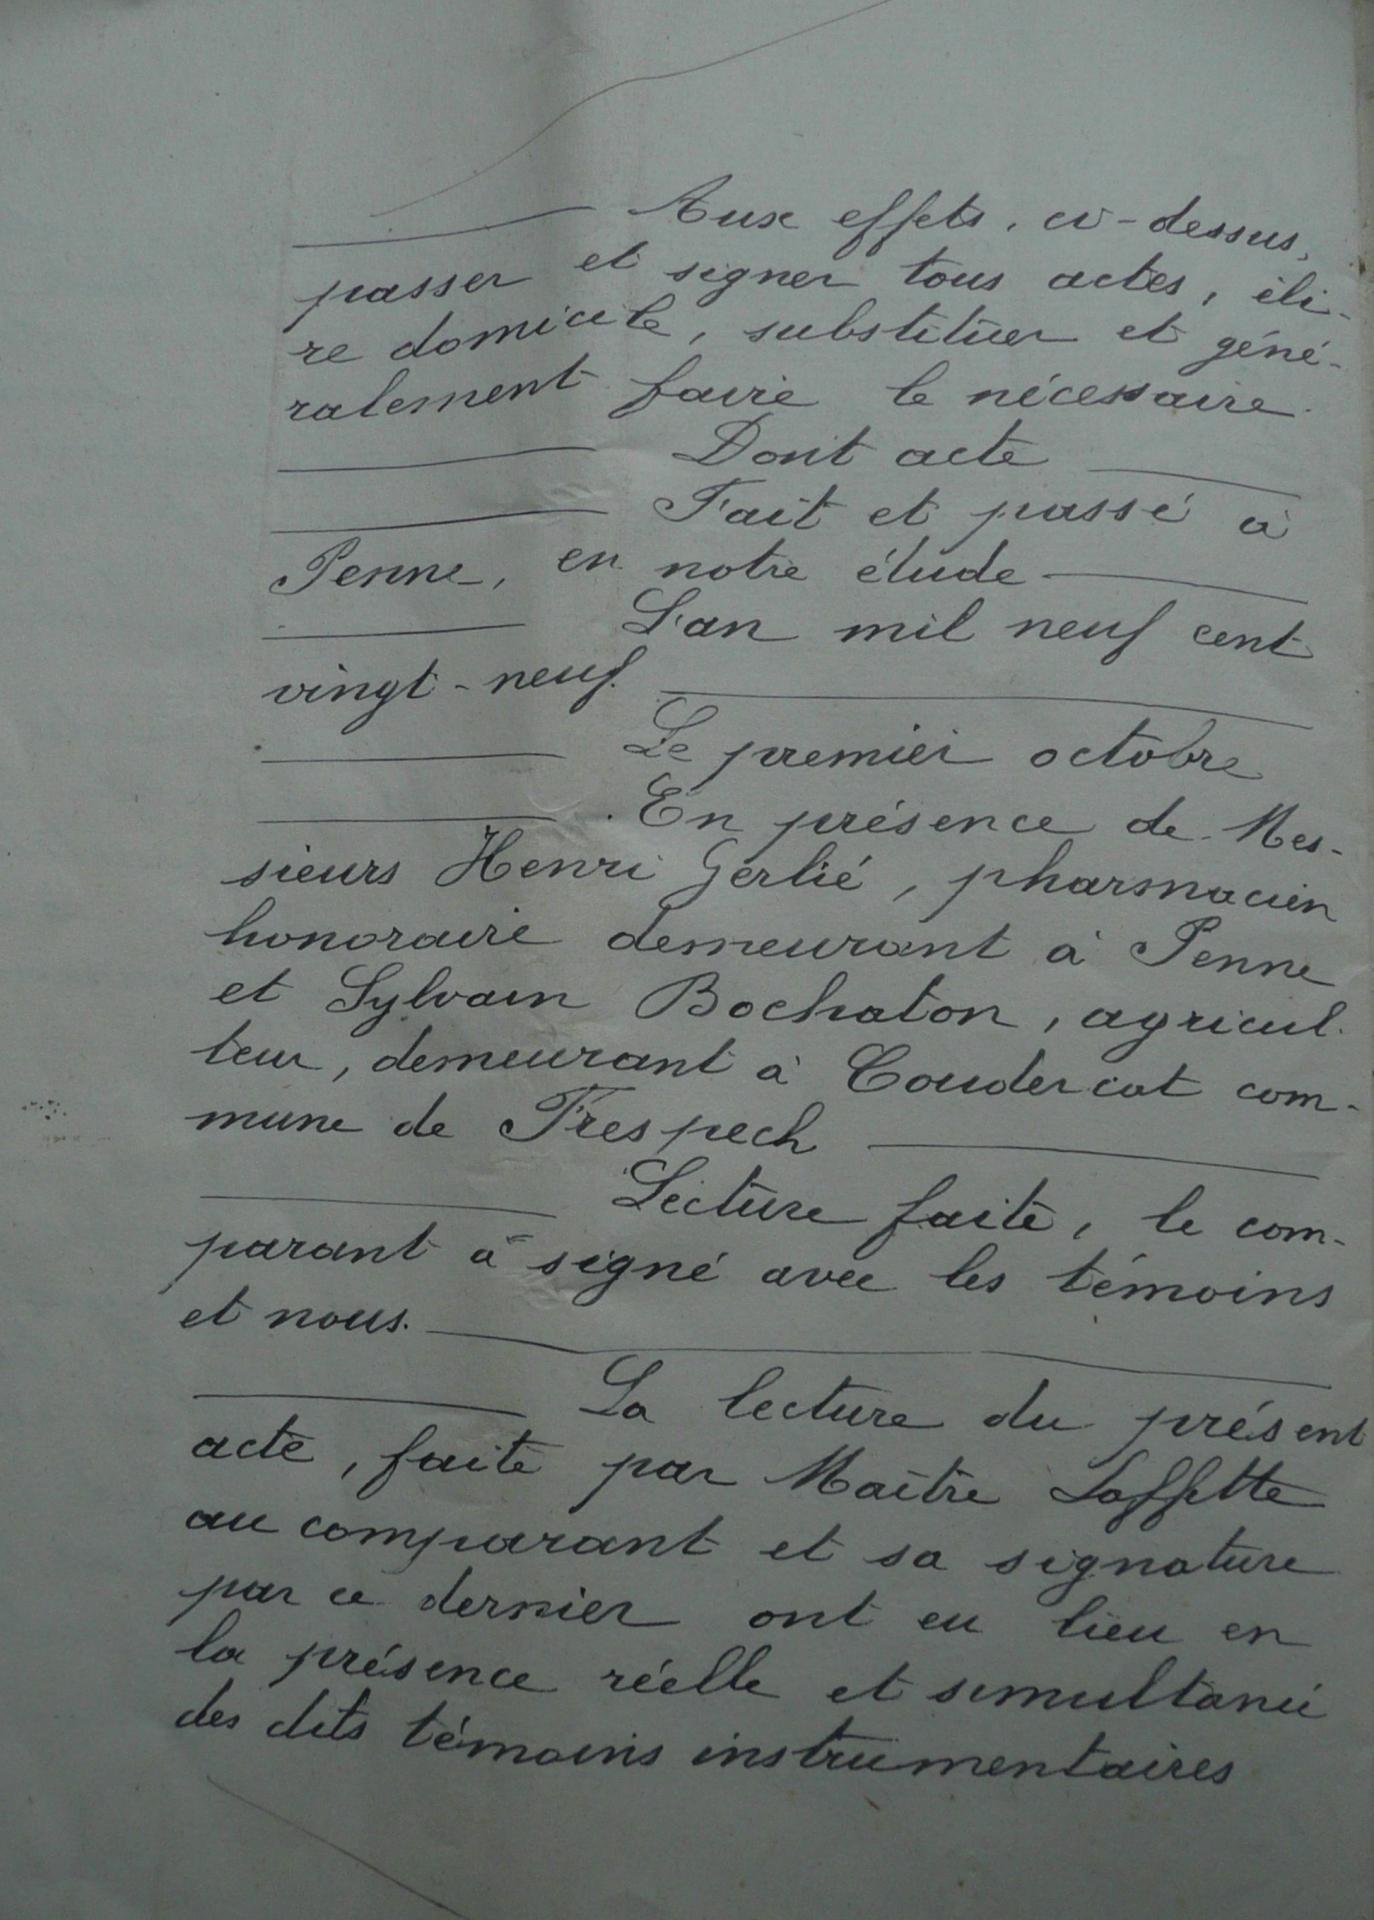 Aux effets, ci-dessus,
passer et signer tous actes, éli-
re domicile, substituer et géné-
ralement faire le nécessaire.
Dont acte
Fait et passé à
Penne, en notre étude
L'an mil neuf cent
vingt-neuf.
Le premier octobre
En présence de Mes-
sieurs Henri Gerlié, pharmacien
honoraire demeurant à Penne
et Sylvain Bochaton, agricul-
teur, demeurant à Coudercat com-
mune de Frespech
Lecture faite, le com-
parant a signé avec les témoins
et nous.
La lecture du présent
acte, faite par Maître Laffitte
au comparant et sa signature
par ce dernier ont eu lieu en
la présence réelle et simultané
des dits témoins instrumentaires